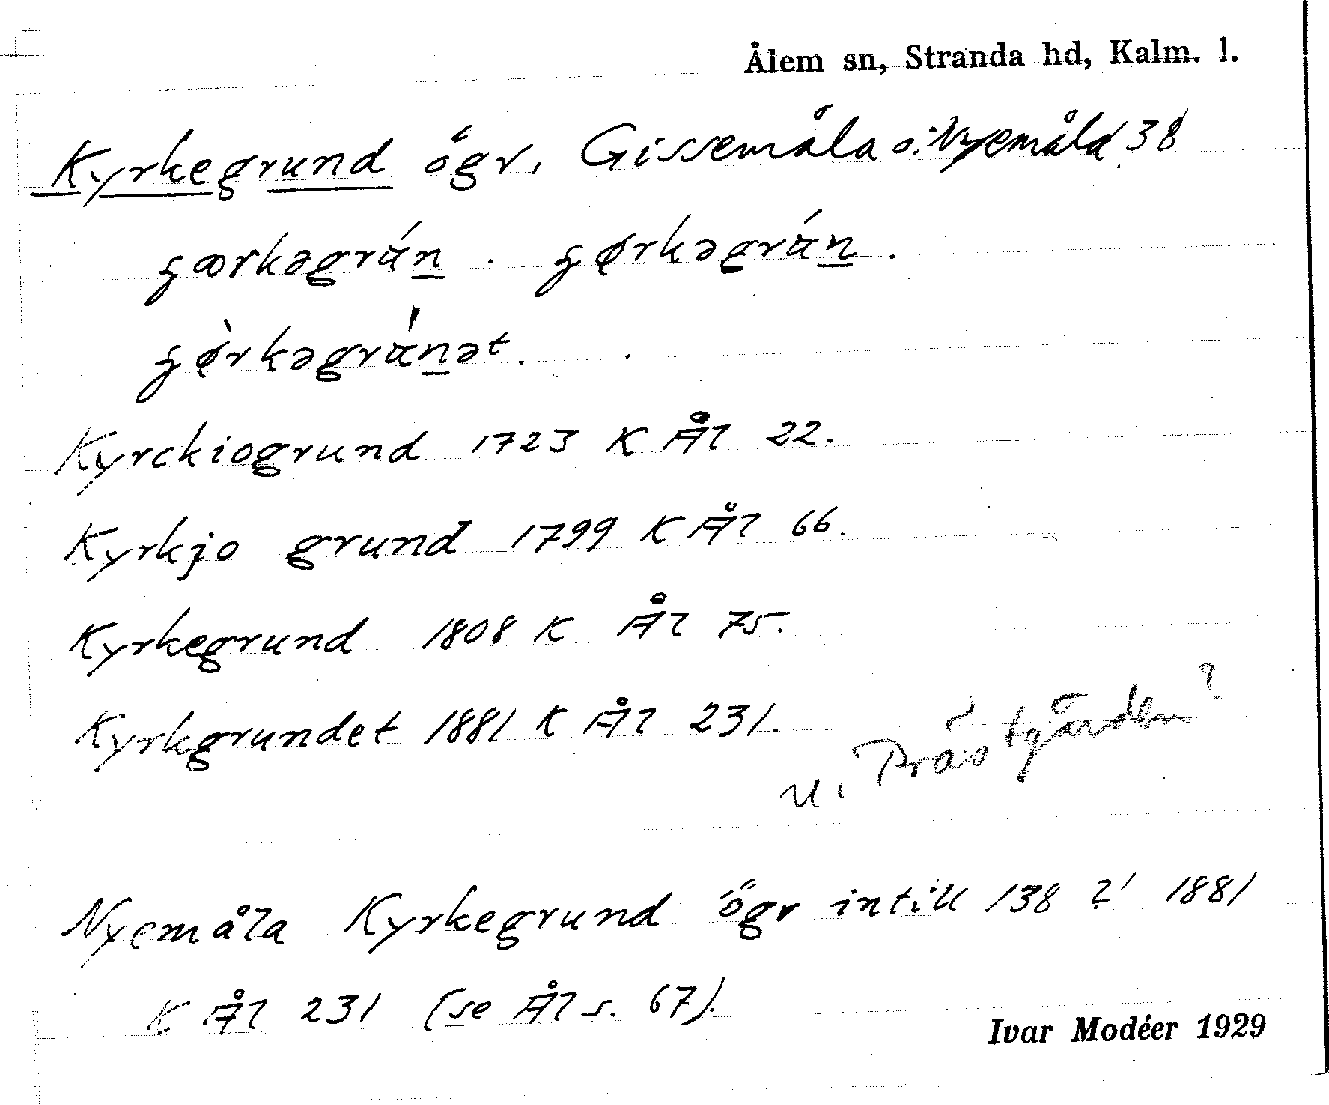 Ålem sn, Stranda hd, Kalm. l.
Kyrkegrund ögr. Gissemåla o. Nyemåla 38
Kyrckiogrund 1723 K Ål 22.
Kyrkjo grund 1799 K Ål 66.
Kyrkegrund 1808 K Ål 75.
Kyrkgrundet 1881 K Ål 231.
u. Prästgården?
Nyemåla Kyrkegrund ögr intill 138 2! 1881
K Ål 231 (se Ål s. 67).
Ivar Modéer 1929